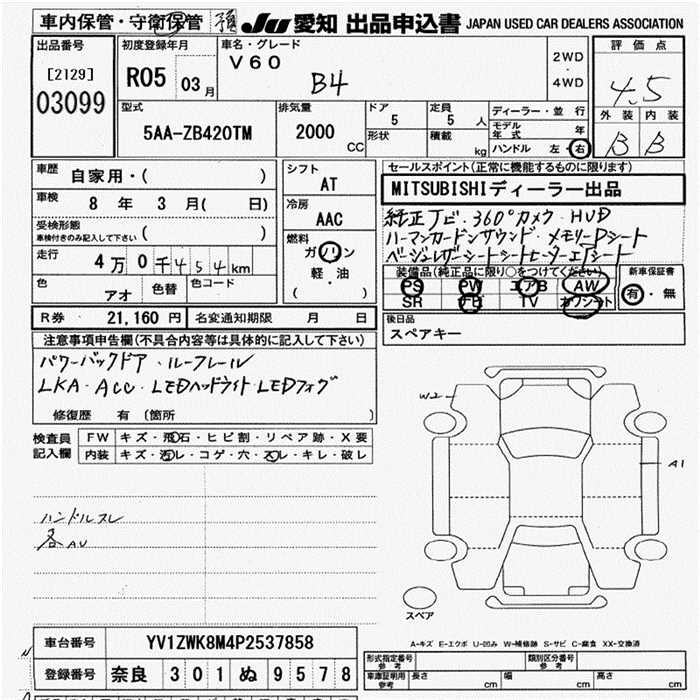 車内保管・守衛保管 JU 愛知 出品申込書 JAPAN USED CAR DEALERS ASSOCIATION
出品番号 [2129] 03099
初度登録年月 R05 03月
車名・グレード V60 B4
2WD・4WD
評価点 4.5
外装 B 内装 B
型式 5AA-ZB420TM
排気量 2000 CC
ドア 5 定員 5 人
形状 積載 kg
ディーラー・並行
モデル年式 年
ハンドル 左・右
車歴 自家用・( )
車検 8 年 3 月( 日)
受検形態 車検付きのみ記入して下さい ( )
走行 4万0千454km
色 アオ 色替 色コード
シフト AT
冷房 AAC
燃料 ガソリン 軽・油 ( )
セールスポイント(正常に機能するものに限ります)
MITSUBISHIディーラー出品
純正ナビ・360°カメラ・HUD
ハーマンカードンサウンド・メモリーPシート
ベージュレザーシート シートヒーター エアシート
装備品(純正品に限り○をつけてください)
PS PW エアB AW
SR TV カワシート
新車保証書 有・無
R券 21,160 円 名変通知期限 月 日
後日品
スペアキー
注意事項申告欄(不具合内容等は具体的に記入して下さい)
パワーバックドア・ルーフレール
LKA・ACC・LEDヘッドライト・LEDフォグ
修復歴 有(箇所 )
検査員記入欄
FW キズ・飛石・ヒビ割・リペア跡・X要
内装 キズ・汚レ・コゲ・穴・スレ・キレ・破レ
ハンドルスレ
各AU
W2
A1
スペア
A-キズ E-エクボ U-凹み W-補修跡 S-サビ C-腐食 XX-交換済
車台番号 YV1ZWK8M4P2537858
登録番号 奈良 301 ぬ 9578
形式指定番号 参考 類別区分番号 参考
車庫証明用 参考 長さ cm 幅 cm 高さ cm